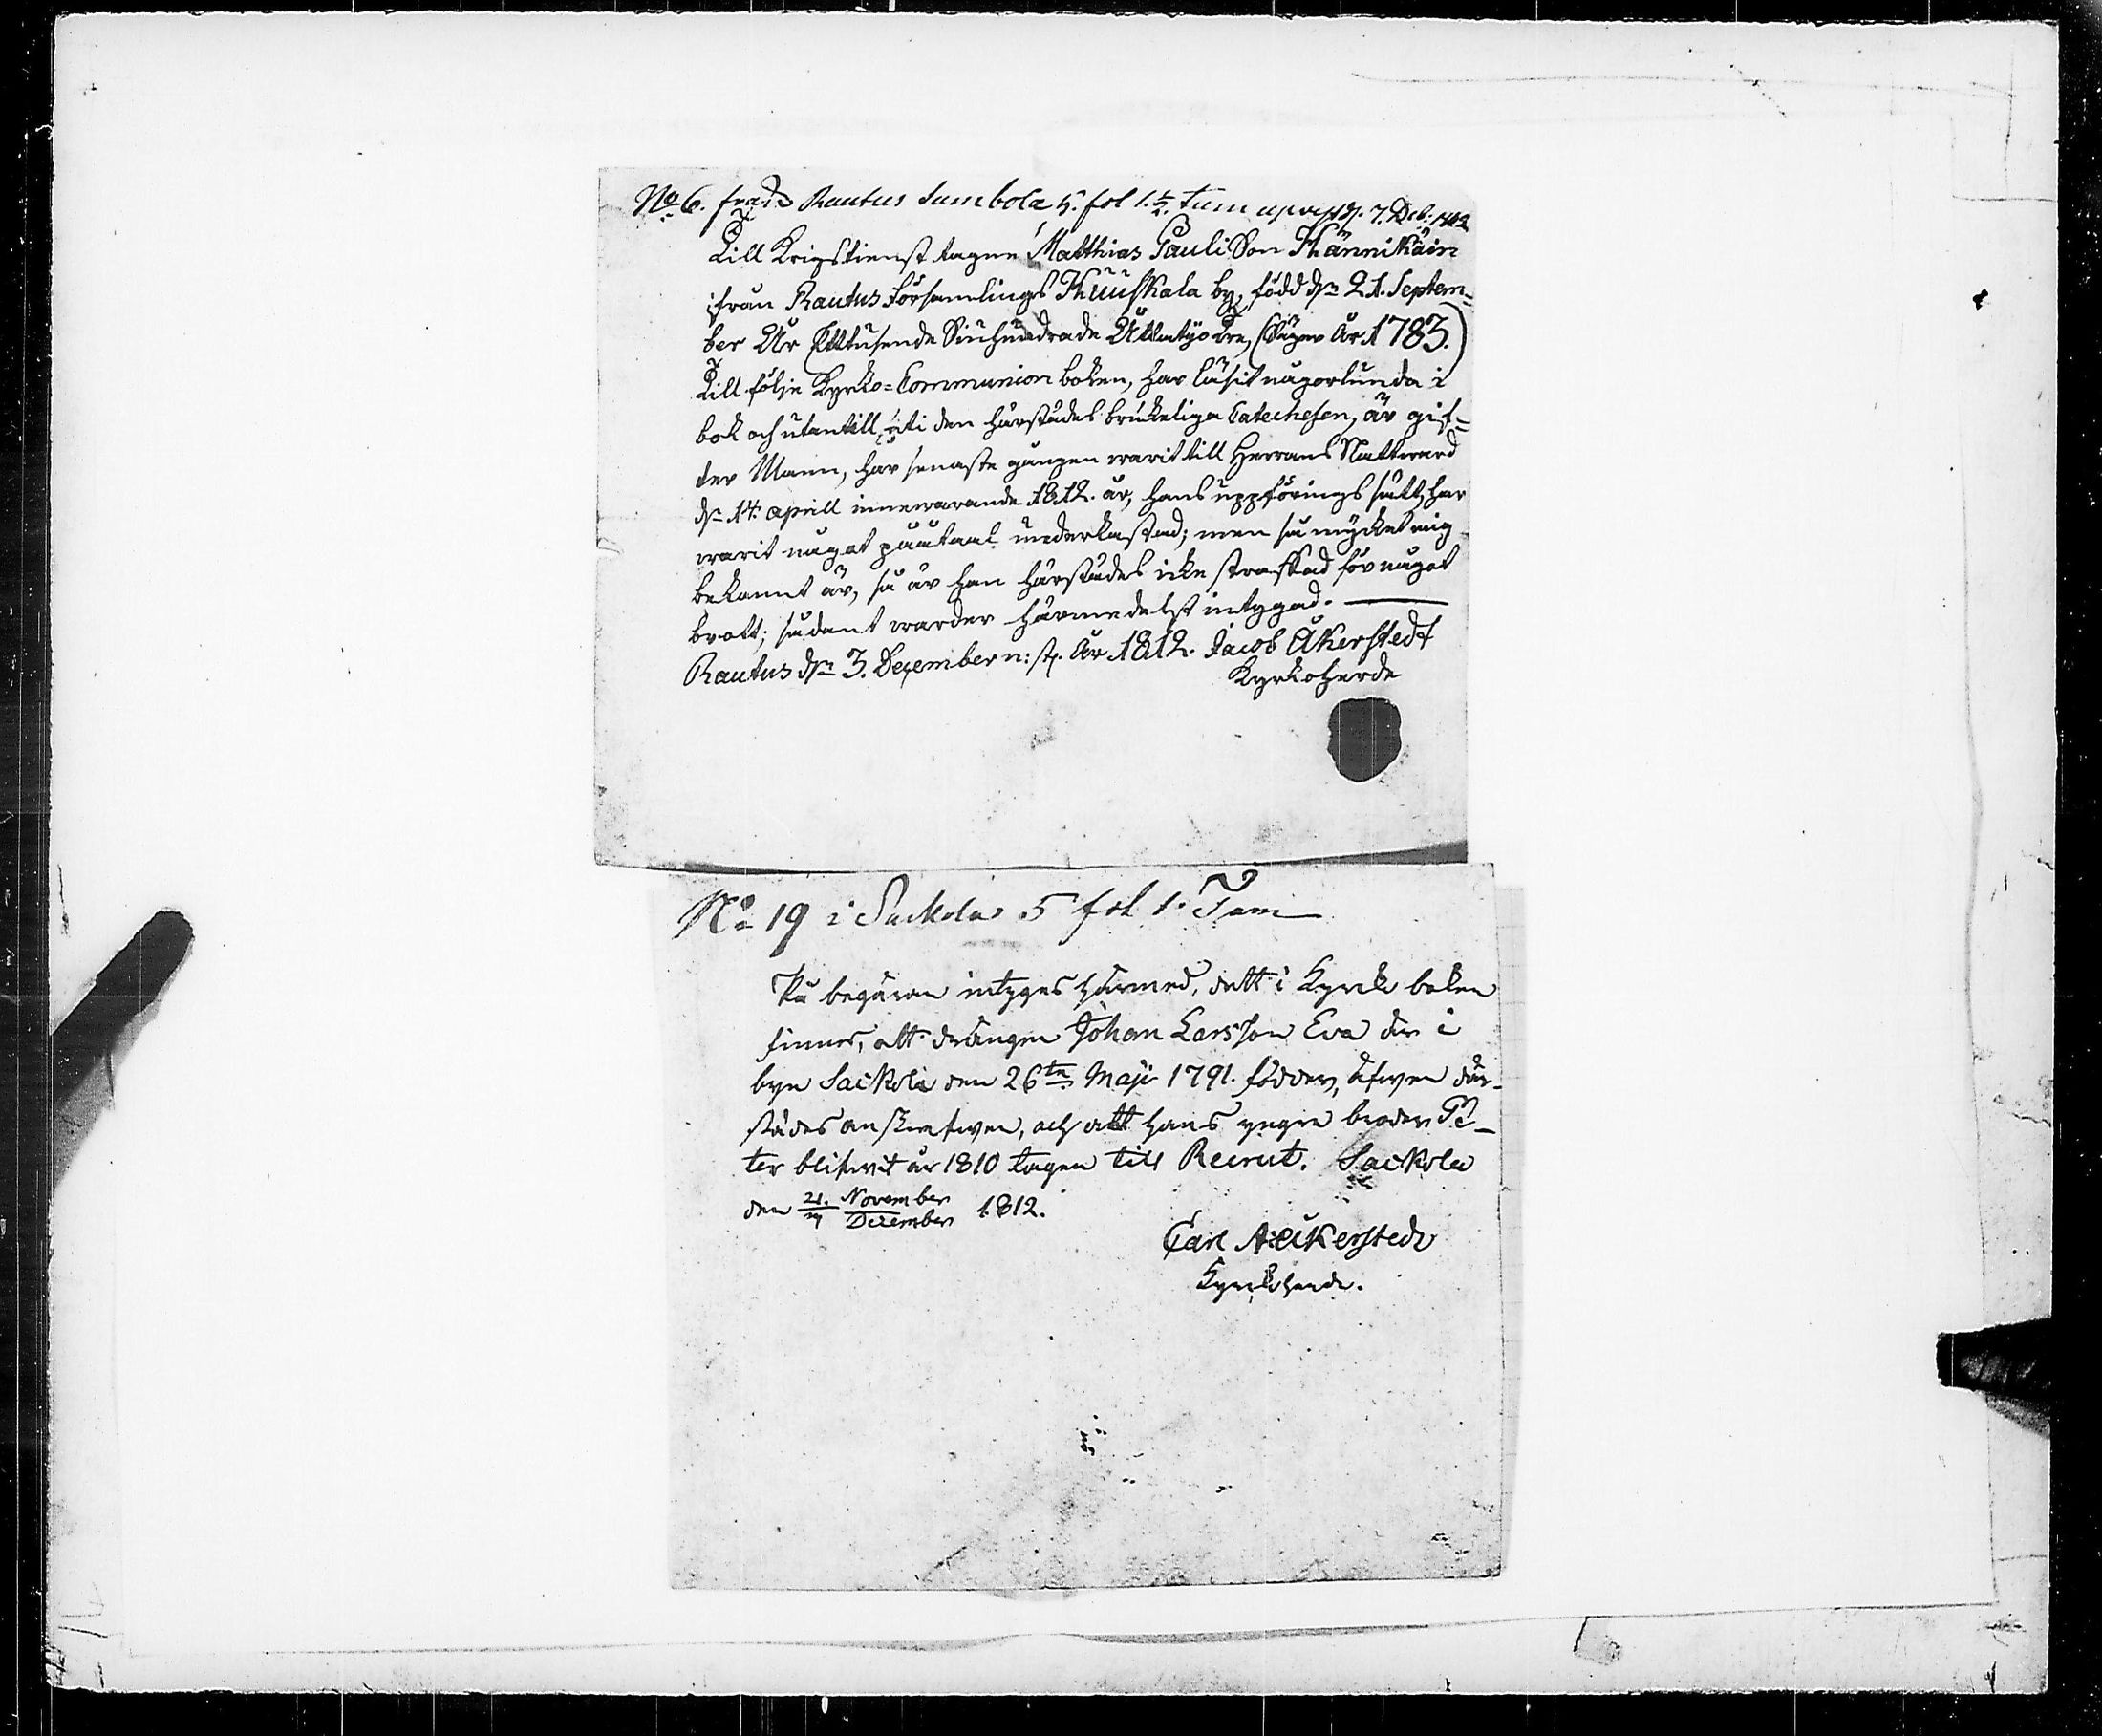 No 6. från Rautus Sumbola 5. fol 1. 1/2. tum uprist. 7. Dec: 1812
Till Krigstienst tagne Matthias Pauli Son Hännikäin
ifrån Rautus Församlings Huuskala by, född dn 21. Septem-
ber År Ettusende Siuhundrade Åttatijo Tre, (säger År 1783.)
Till följe Kyrko-Communion boken, har läsit någorlunda i
bok och utantill, uti den härstädes brukeliga Catechesen, är gif-
ter Mann, har senaste gången warit till Herrans Nattward
dn 14. aprill innewarande 1812. år, hans uppförings sätt, har
warit något påataal underkastad; men så mycket mig
bekannt är, så är han härstädes icke straffad för något
brott; sådant warder härmedelst intygad.
Rautus dn 3. December n: st. År 1812. Jacob Åkerstedt
Kyrkoherde
No 19 i Sackola 5 fol 1. Tum
På begäran intyges härmed, dett i Kyrko boken
finnes, att drängen Johan Larsson Eva är i
byn Saickola den 26te Maji 1791. födder, äfwen där-
städes anskrefwen, och att hans yngre broder Pe-
ter blifwit år 1810 tagen till Recrut. Saickola
den 21. November / December 1812.
Carl Aeickerstedt
Kyrkoherde.